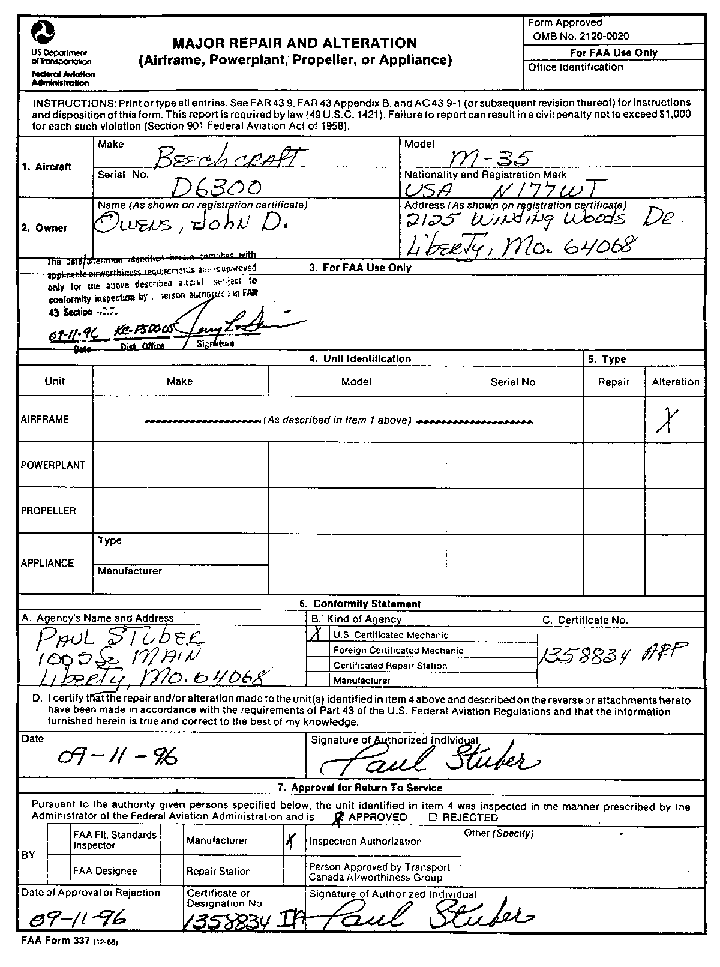 US Department
of Transportation
Federal Aviation
Administration
MAJOR REPAIR AND ALTERATION
(Airframe, Powerplant, Propeller, or Appliance)
Form Approved
OMB No. 2120-0020
For FAA Use Only
Office Identification
INSTRUCTIONS: Print or type all entries. See FAR 43.9, FAR 43 Appendix B, and AC 43.9-1 (or subsequent revision thereof) for instructions
and disposition of this form. This report is required by law (49 U.S.C. 1421). Failure to report can result in a civil penalty not to exceed $1,000
for each such violation (Section 901 Federal Aviation Act of 1958).
1. Aircraft
Make
BEECHCRAFT
Model
M-35
Serial No.
D6300
Nationality and Registration Mark
USA N177WT
2. Owner
Name (As shown on registration certificate)
OWENS, JOHN D.
Address (As shown on registration certificate)
2125 WINDING WOODS DR
LIBERTY, MO. 64068
3. For FAA Use Only
The data/alteration identified herein complies with
applicable airworthiness requirements and is approved
only for the above described aircraft, subject to
conformity inspection by a person authorized in FAR
43 Section
09-11-96
Date Dist Office Signature
4. Unit Identification
5. Type
Unit Make Model Serial No Repair Alteration
AIRFRAME (As described in Item 1 above) X
POWERPLANT
PROPELLER
APPLIANCE
Type
Manufacturer
6. Conformity Statement
A. Agency's Name and Address
PAUL STUBER
1005 S. MAIN
LIBERTY, MO. 64068
B. Kind of Agency
X U.S. Certificated Mechanic
Foreign Certificated Mechanic
Certificated Repair Station
Manufacturer
C. Certificate No.
1358834 A&P
D. I certify that the repair and/or alteration made to the unit(s) identified in item 4 above and described on the reverse or attachments hereto
have been made in accordance with the requirements of Part 43 of the U.S. Federal Aviation Regulations and that the information
furnished herein is true and correct to the best of my knowledge.
Date
09-11-96
Signature of Authorized Individual
Paul Stuber
7. Approval for Return To Service
Pursuant to the authority given persons specified below, the unit identified in item 4 was inspected in the manner prescribed by the
Administrator of the Federal Aviation Administration and is X APPROVED □ REJECTED
BY
FAA Flt. Standards
Inspector
Manufacturer
X Inspection Authorization
Other (Specify)
FAA Designee
Repair Station
Person Approved by Transport
Canada Airworthiness Group
Date of Approval or Rejection
09-11-96
Certificate or
Designation No
1358834 IA
Signature of Authorized Individual
Paul Stuber
FAA Form 337 (12-88)